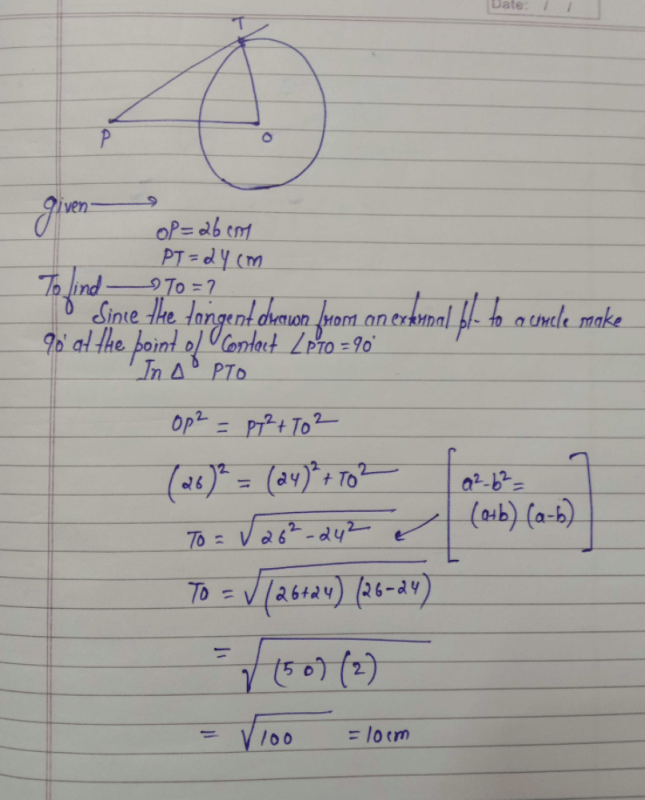 Date: / /
T
P
O
given →
OP = 26 cm
PT = 24 cm
To find → TO = ?
Since the tangent drawn from an external pt- to a circle make
90° at the point of contact ∠PTO = 90°
In Δ PTO
OP² = PT² + TO²
(26)² = (24)² + TO²
[a² - b² =
(a+b) (a-b)]
TO = √26² - 24² ←
TO = √(26+24) (26-24)
= √(50) (2)
= √100 = 10 cm